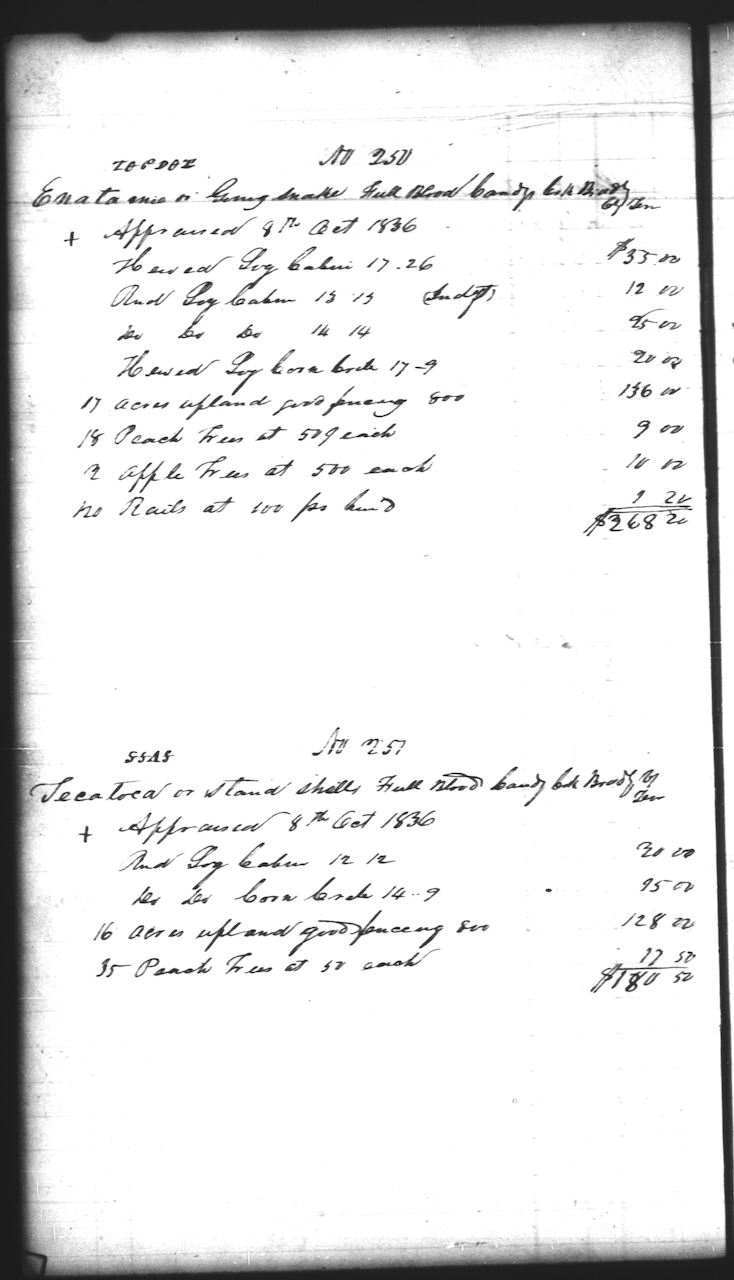 No 250
Enatanie or Going snake Full Blood Candys Crk Bradly
Cty Ten
+ Appraised 8th Oct 1836
Hewed Log Cabin 17.26 $35 00
Rnd Log Cabin 13 13 12 00
Do Do Do 14 14 25 00
Hewed Log Corn Crib 17-9 20 00
17 acres upland good fenceng 800 136 00
18 Peach Trees at 50 each 9 00
2 Apple Trees at 500 each 10 00
Rails at 100 pr hund 1 20
$268 20
No 251
Tecatoca or Stand Shells Full Blood Candy Crk Bradly Cty
Ten
+ Appraised 8th Oct 1836
Rnd Log Cabin 12 12 20 00
Do Do Corn Crib 14-9 15 00
16 acres upland good fenceng 800 128 00
35 Peach Trees at 50 each 17 50
$180 50